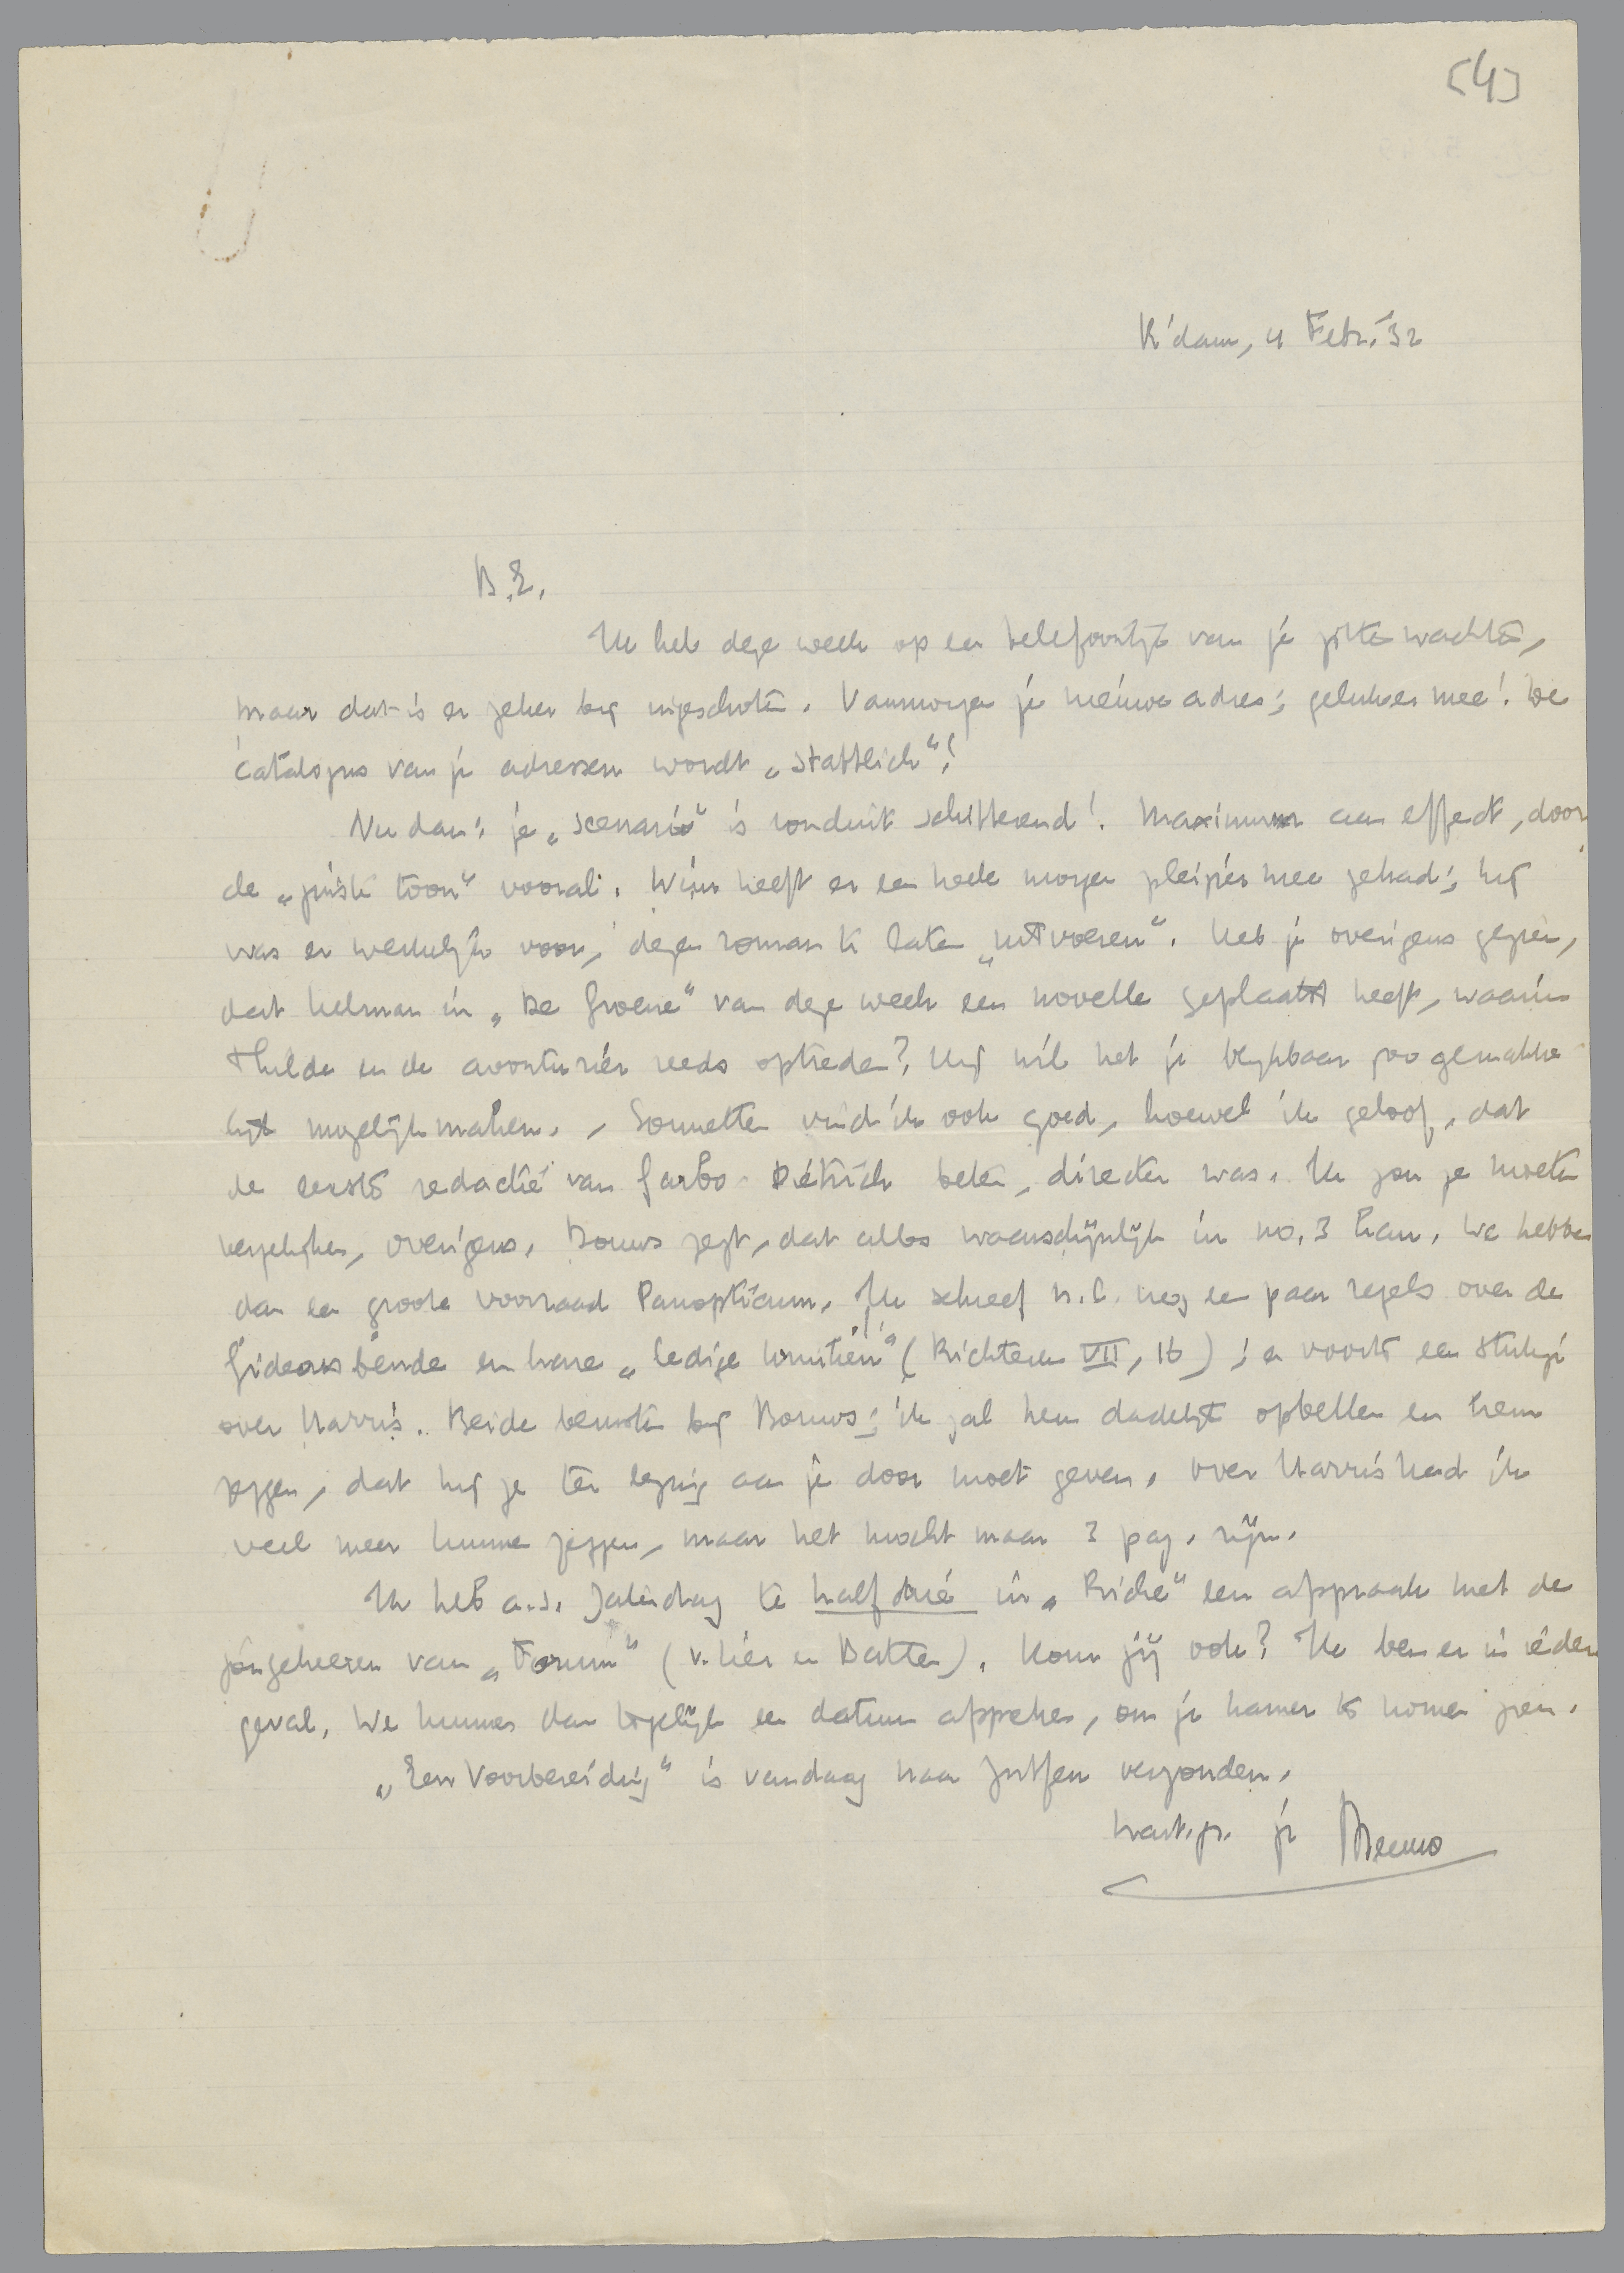 [4]
R'dam, 4 Febr. '32
B.E.
Ik heb deze week op een telefoontje van je zitten wachten,
maar dat is er zeker bij ingeschoten. Vanmorgen je nieuwe adres; geluk er mee! De
catalogus van je adressen wordt „stattlich"!
Nu dan: je „scenario" is ronduit schitterend! Maximum aan effect, door
de „juiste toon" vooral. Wim heeft er een heele morgen pleizier mee gehad; hij
was er werkelijk voor, dezen roman te laten „uitvoeren". Heb je overigens gezien,
dat Helman in „De Groene" van deze week een novelle geplaatst heeft, waarin
Hilda en de avonturier reeds optreden? Hij wil het je blijkbaar zoo gemakke
lijk mogelijk maken. , Sonnetten vind ik ook goed, hoewel ik geloof, dat
de eerste redactie van Garbo-Dietrich beter, directer was. Ik zou ze moeten
vergelijken, overigens. Bouws zegt, dat alles waarschijnlijk in no. 3 kan. We hebben
dan een groote voorraad Panopticum. Ik schreef n.l. nog een paar regels over de
Gideonsbende en hare „ledige kruiken" (Richteren VII, 16); en voorts een stukje
over Harris. Beide berusten bij Bouws; ik zal hem dadelijk opbellen en hem
zeggen, dat hij ze ter lezing aan je door moet geven. Over Harris had ik
veel meer kunnen zeggen, maar het mocht maar 3 pag. zijn.
Ik heb a.s. Zaterdag te half drie in „Riche" een afspraak met de
jongeheeren van „Forum" (v. hier en Batten). Kom jij ook? Ik ben er in ieder
geval. We kunnen dan tegelijk een datum afspreken, om je kamer te komen zien.
„Een Voorbereiding" is vandaag naar Zutfen verzonden.
hart. gr. je Menno